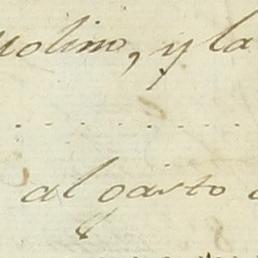 Molino, y la
al gasto